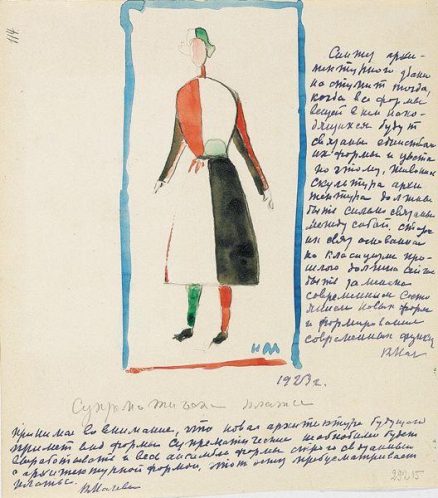 114.
Синтез архи-
тектурного здания
наступит тогда,
когда все формы
вещей в нем нахо-
дящихся будут
связаны единством
их формы и цвета
по этому, живопись
скульптура архи
тектура должны
быть сильно связаны
между собой, стара
ия связ основанная
на класицизме про-
шлого должна сейчас
быть заменена
современным
новых форм
и формирование
современных функц
К Мал
КМ
1923 г.
Супрематизм платье
Принимая во внимание, что новая архитектура будущего
примет вид формы Супрематические необходимо будет
выработать и весь ансамбль формы строго связанный
с архитектурной формой, этот эскиз предусматривает
платье.
К Малевич